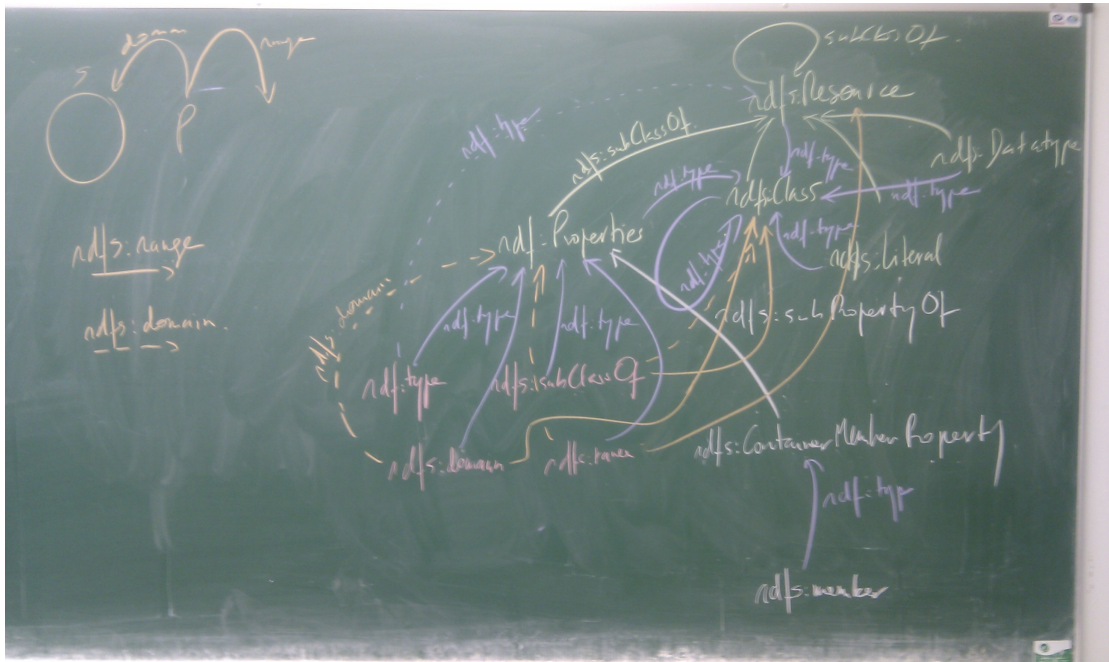 domain
range
S
P
subClassOf.
rdfs:Resource
rdf:type
rdfs:subClassOf
rdf:type
rdfs:Datatype
rdf:type
rdfs:Class
rdf:type
rdf:type
rdf:Properties
rdf:type
rdfs:Literal
rdfs:range
rdfs:domain
rdfs:domain.
rdf:type
rdf:type
rdfs:subPropertyOf
rdf:type
rdfs:subClassOf
rdfs:domain
rdfs:ContainerMemberProperty
rdf:type
rdfs:member